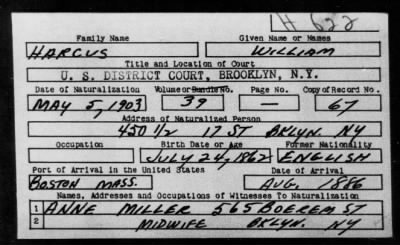 H 622
Family Name Given Name or Names
HARCUS WILLIAM
Title and Location of Court
U. S. DISTRICT COURT, BROOKLYN, N.Y.
Date of Naturalization Volume or Bundle No. Page No. Copy of Record No.
MAY 5, 1903 39 — 67
Address of Naturalized Person
450 1/2 17 ST BKLYN. NY
Occupation Birth Date or Age Former Nationality
JULY 24, 1862 ENGLISH
Port of Arrival in the United States Date of Arrival
BOSTON MASS. AUG. 1886
Names, Addresses and Occupations of Witnesses To Naturalization
1 ANNE MILLER 565 BOEREM ST
2 MIDWIFE BKLYN. NY